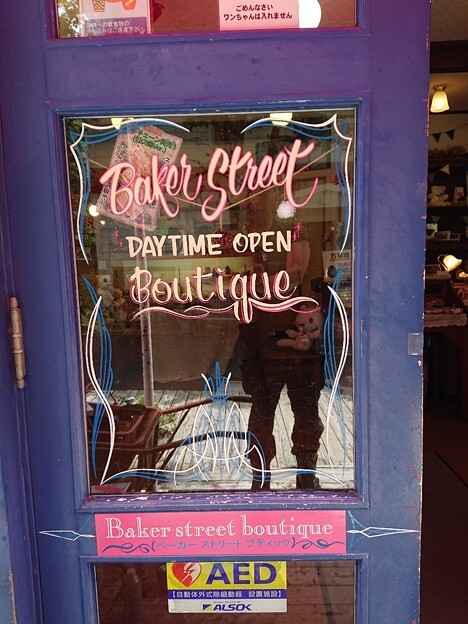 ごめんなさい
ワンちゃんは入れません
Baker Street
DAYTIME OPEN
Boutique
Baker street boutique
(ベーカー ストリート ブティック)
AED
【自動体外式除細動器 設置施設】
ALSOK